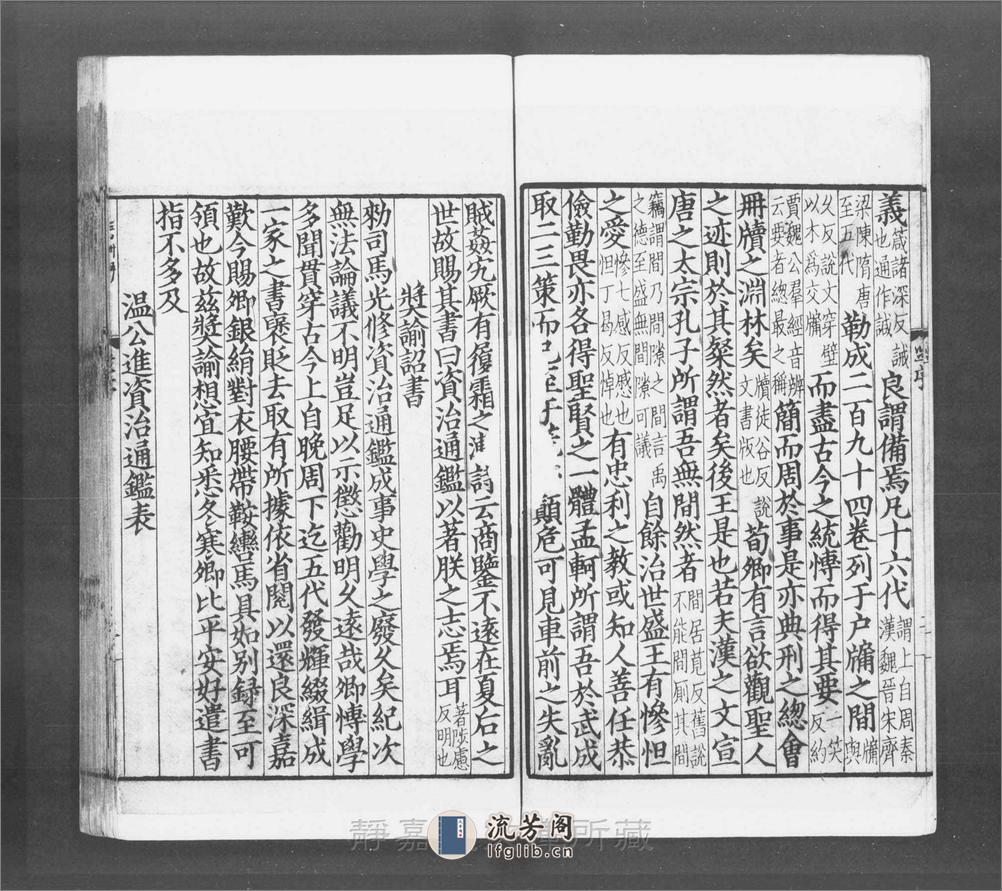 義箴諸深反誡也通作誡良謂備焉凡十六代謂上自周秦漢魏晉宋齊
梁陳隋唐至五代勒成二百九十四卷列于户牖之間牖與
久反說文穿壁以木為交牖而盡古今之統愽而得其要一笑反約
賈魏公羣經音辨云要者總最之稱簡而周於事是亦典刑之總會
冊牘之淵林矣牘徒谷反說文書版也荀卿有言欲觀聖人
之迹則於其粲然者矣後王是也若夫漢之文宣
唐之太宗孔子所謂吾無間然者間居莧反舊說不能間厠其間
竊謂間乃間隙之間言禹之德至盛無間隙可議自餘治世盛王有慘怛
之愛慘七感反感也怛丁曷反悼也有忠利之教或知人善任恭
儉勤畏亦各得聖賢之一體孟軻所謂吾於武成
取二三策而已至于顛危可見車前之失亂
賊姦宄厥有履霜之詩云商鑒不遠在夏后之
世故賜其書曰資治通鑑以著朕之志焉耳著陟慮反明也
奬諭詔書
勑司馬光修資治通鑑成事史學之廢久矣紀次
無法論議不明豈足以示懲勸明久遠哉卿愽學
多聞貫穿古今上自晚周下迄五代發輝綴緝成
一家之書襃貶去取有所據依省閱以還良深嘉
歎今賜卿銀絹對衣腰帶鞍轡馬具如别録至可
領也故兹奬諭想宜知悉冬寒卿比平安好遣書
指不多及
溫公進資治通鑑表
靜嘉 所藏
流芳阁
lfglib.cn